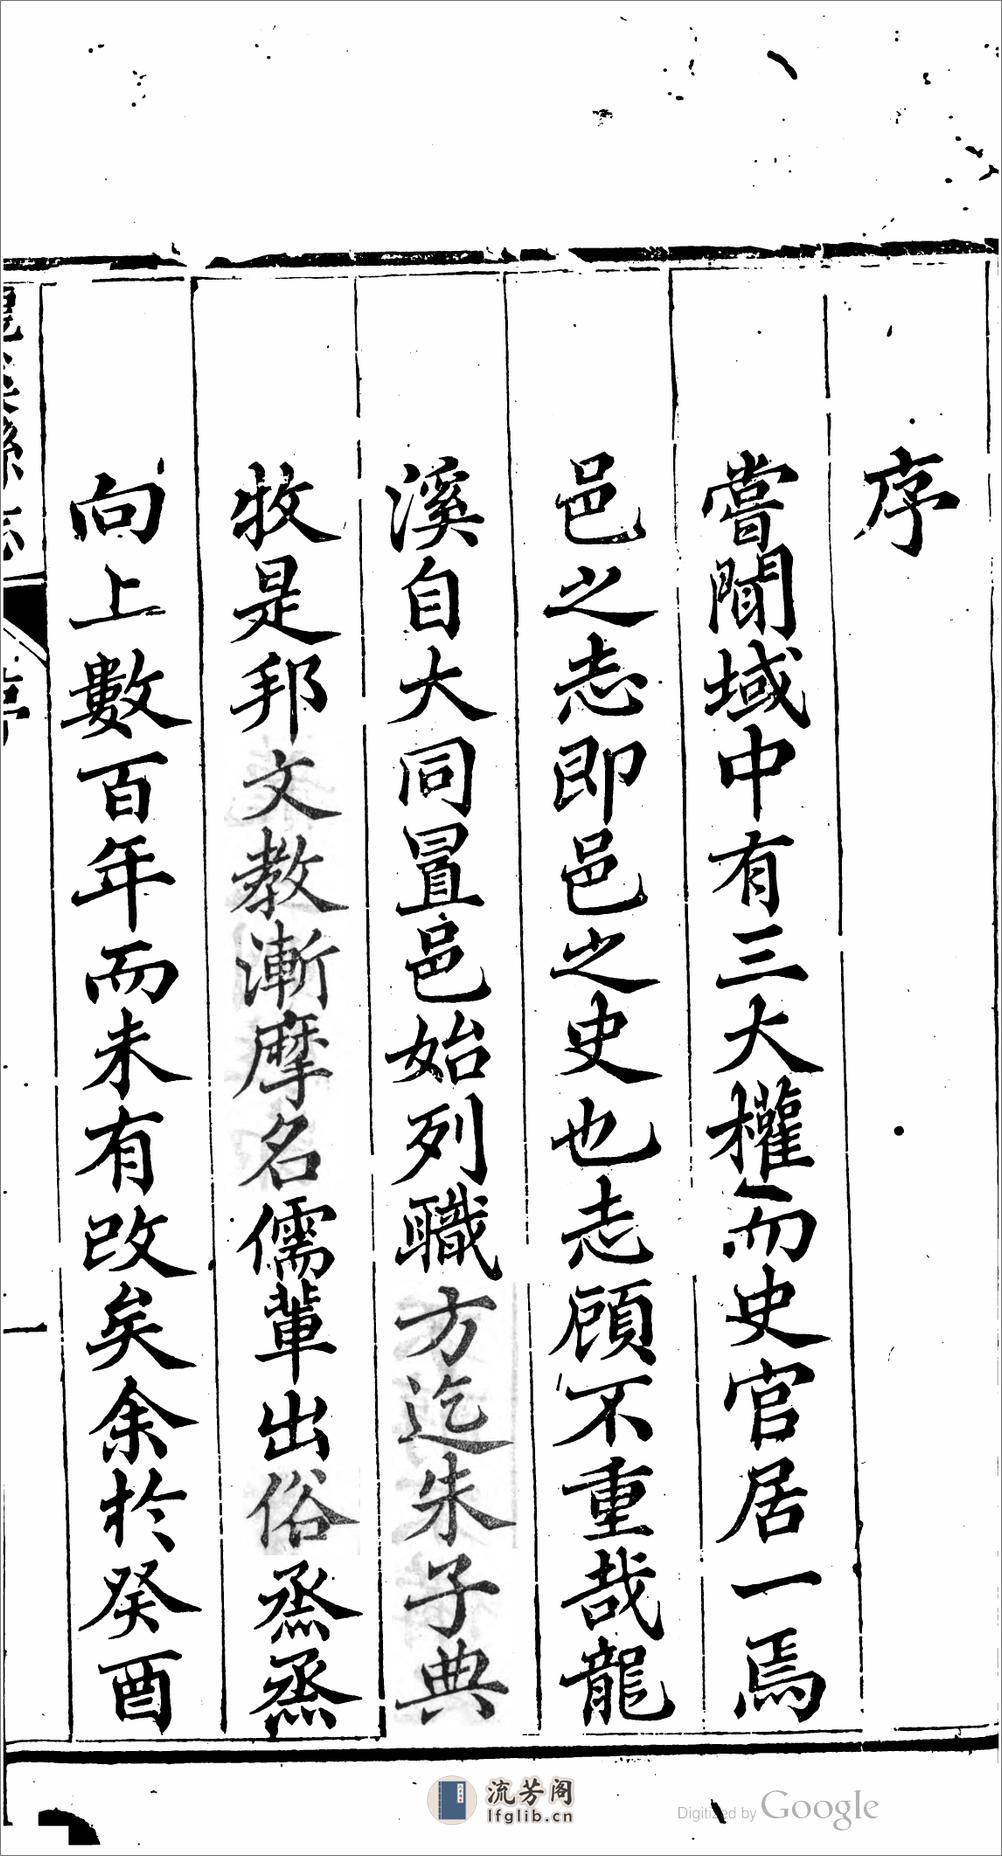 序
嘗聞域中有三大權而史官居一焉
邑之志即邑之史也志顧不重哉龍
溪自大同置邑始列職方迄朱子典
牧是邦文教漸摩名儒輩出俗烝烝
向上數百年而未有改矣余於癸酉
龍溪縣志
序
一
流芳阁
lfglib.cn
Digitized by Google